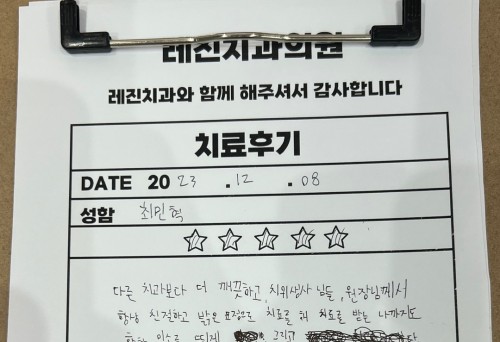 레진치과의원
레진치과와 함께 해주셔서 감사합니다
치료후기
DATE 20 23 . 12 . 08
성함 최민혁
다른 치과보다 더 깨끗하고, 치위생사 님들, 원장님께서
항상 친절하고 밝은 표정으로 치료를 해 치료를 받는 나까지도
항상 미소를 띄게 그리고